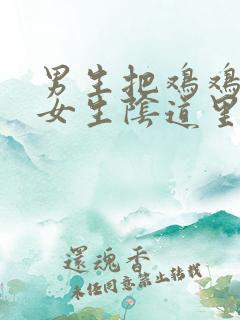 男生把鸡鸡
女生陰道里
還魂香
未任同意禁止转载